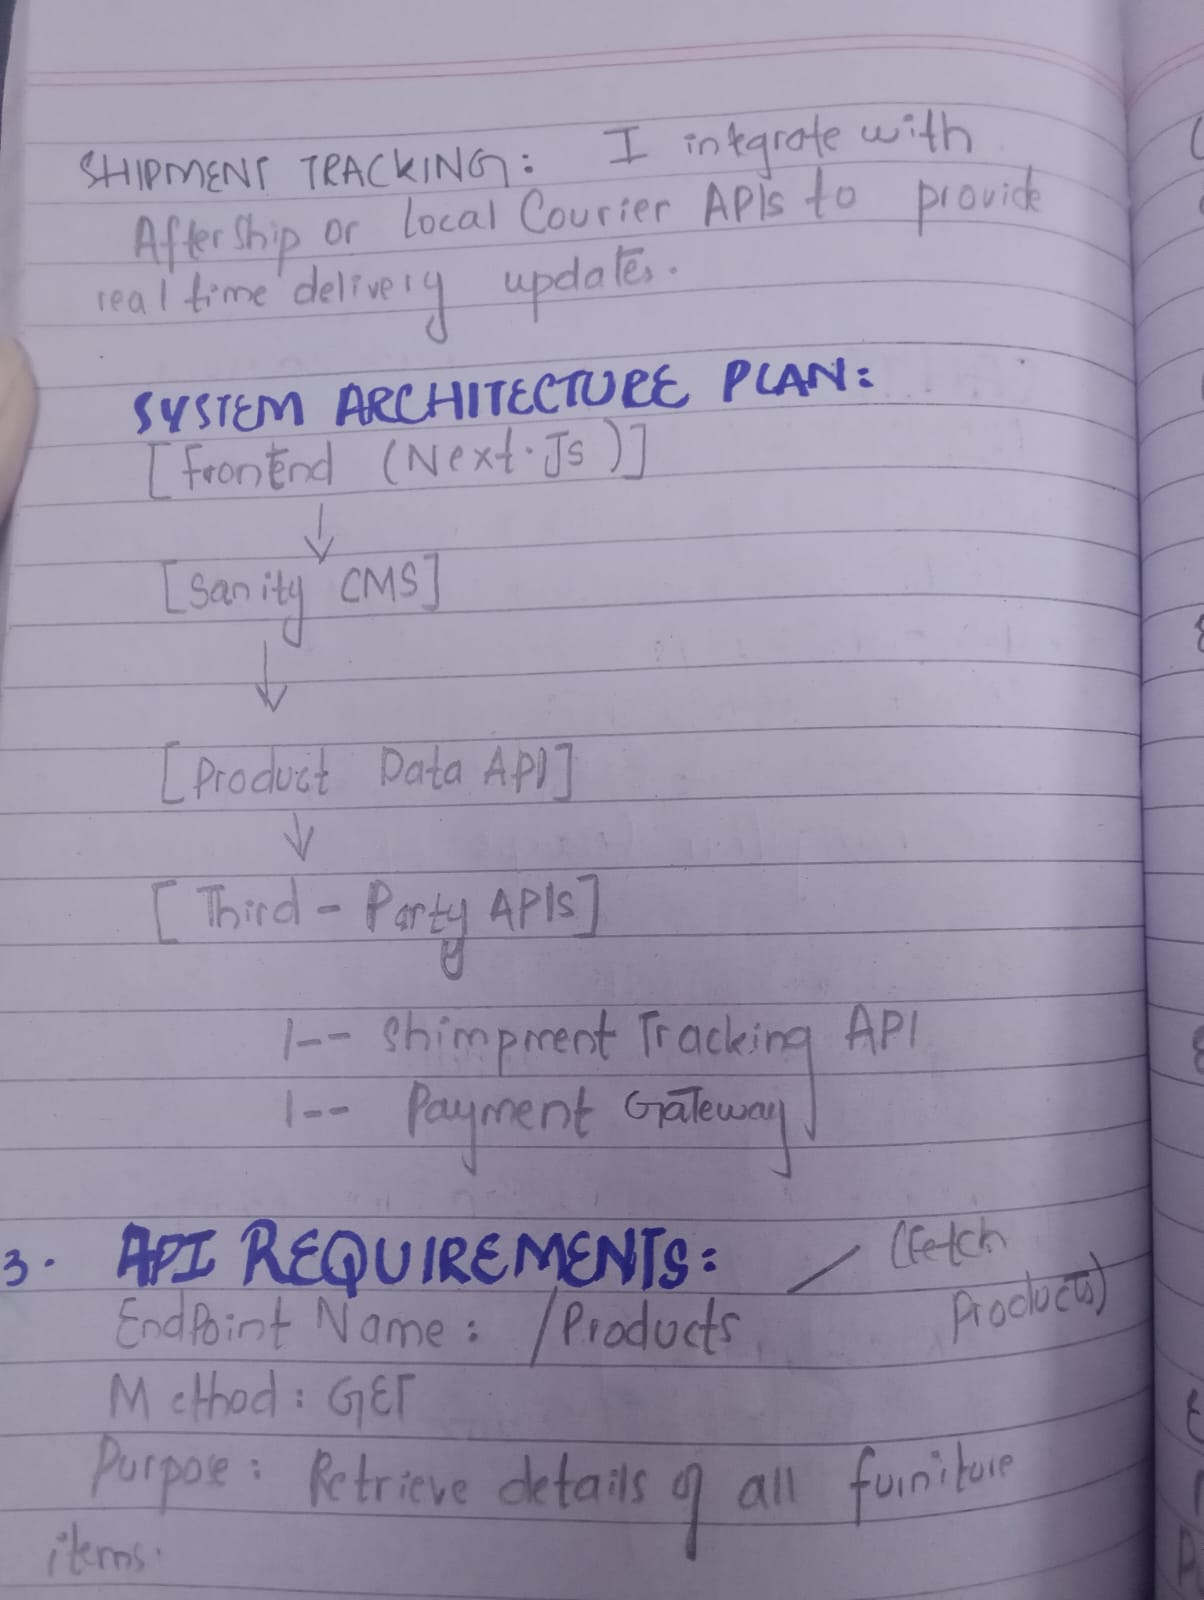 SHIPMENT TRACKING: I integrate with
AfterShip or Local Courier APIs to provide
real time delivery updates.
SYSTEM ARCHITECTURE PLAN:
[FrontEnd (Next.Js)]
↓
[Sanity CMS]
↓
[Product Data API]
↓
[Third-Party APIs]
|-- Shimpment Tracking API
|-- Payment Gateway
3. API REQUIREMENTS: / (Fetch
Products)
EndPoint Name: /Products
Method: GET
Purpose: Retrieve details of all furniture
items.